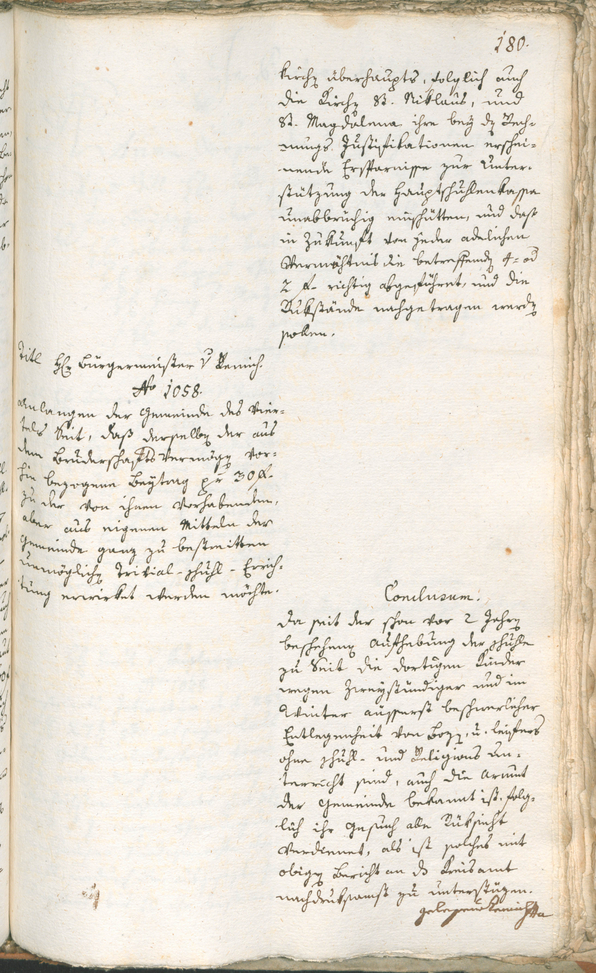 180.
Kirchen überhaupts, folglich auch
die Kirchen St. Niklaus, und
St. Magdalena ihre bey den Rech-
nungs Justifikationen erschei-
nende Ersparnisse zur Unter-
stützung der Hauptschuhlenkassa
unabbrüchig einschütten, und daß
in Zukunft von jeder adelichen
Vermächtnis die betreffenden 4 = od
2 f. richtig abgeführet, und die
Rükstände nachgetragen werden
sollen.
Titl H. Bürgermeister v
No 1058.
Anlangen der Gemeinde des Vier-
tels Seit, daß derselben der aus
dem Bruderschafts Vermögen vor-
hin bezogene Beytrag pr 30 f.
zu der von ihnen vorhabenden,
aber aus eigenen Mitteln der
Gemeinde ganz zu bestreitten
unmöglichen Trivial-Schuhl-Errich-
tung erwirket werden möchte.
Conclusum:
Da seit der schon vor 2 Jahren
beschehenen Aufhebung der Schuhle
zu Seit die dortigen Kinder
wegen zweystündiger und im
Winter äusserst beschwerlicher
Entlegenheit von Bozen, u. Leifers
ohne Schuhl- und Religions Un-
terricht sind, auch die Armut
der Gemeinde bekannt ist, folg-
lich ihr Gesuch alle Rüksicht
verdienet, als ist solches mit
obigen Bericht an d Kreisamt
nachdruksamst zu unterstüzen.